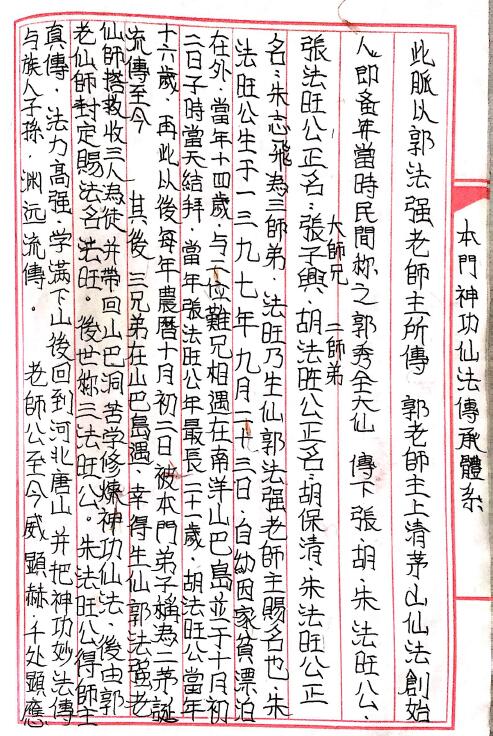 本門神功仙法傳承體系
此脈以郭法强老師主所傳　郭老師主上清茅山仙法創始
人即蚤年當時民間称之郭秀全大仙　傳下張、胡、朱法旺公、
大師兄　二師弟
張法旺公正名：張子興、胡法旺公正名：胡保清、朱法旺公正
名：朱志飛為三師弟、法旺乃生仙郭法强老師主賜名也、朱
法旺公生于一三九七年九月二十三日、自幼因家貧漂泊
在外、當年十四歲、与二位難兄相遇在南洋山巴島並于十月初
二日子時當天結拜、當年張法旺公年最長二十歲、胡法旺公當年
十六歲、再此以後每年農曆十月初二日被本門弟子稱為二茅誕
流傳至今　其後三兄弟在山巴島遇　幸得生仙郭法强老
仙師搭救收三人為徒并帶回山巴洞苦学修煉神功仙法、後由郭
老仙師封定賜法名法旺。後世称三法旺公。朱法旺公得師主
真傳、法力高强、学滿下山後回到河北唐山　并把神功妙法傳
与族人子孫、渊远流傳、　老師公至今威顯赫、千处顯應